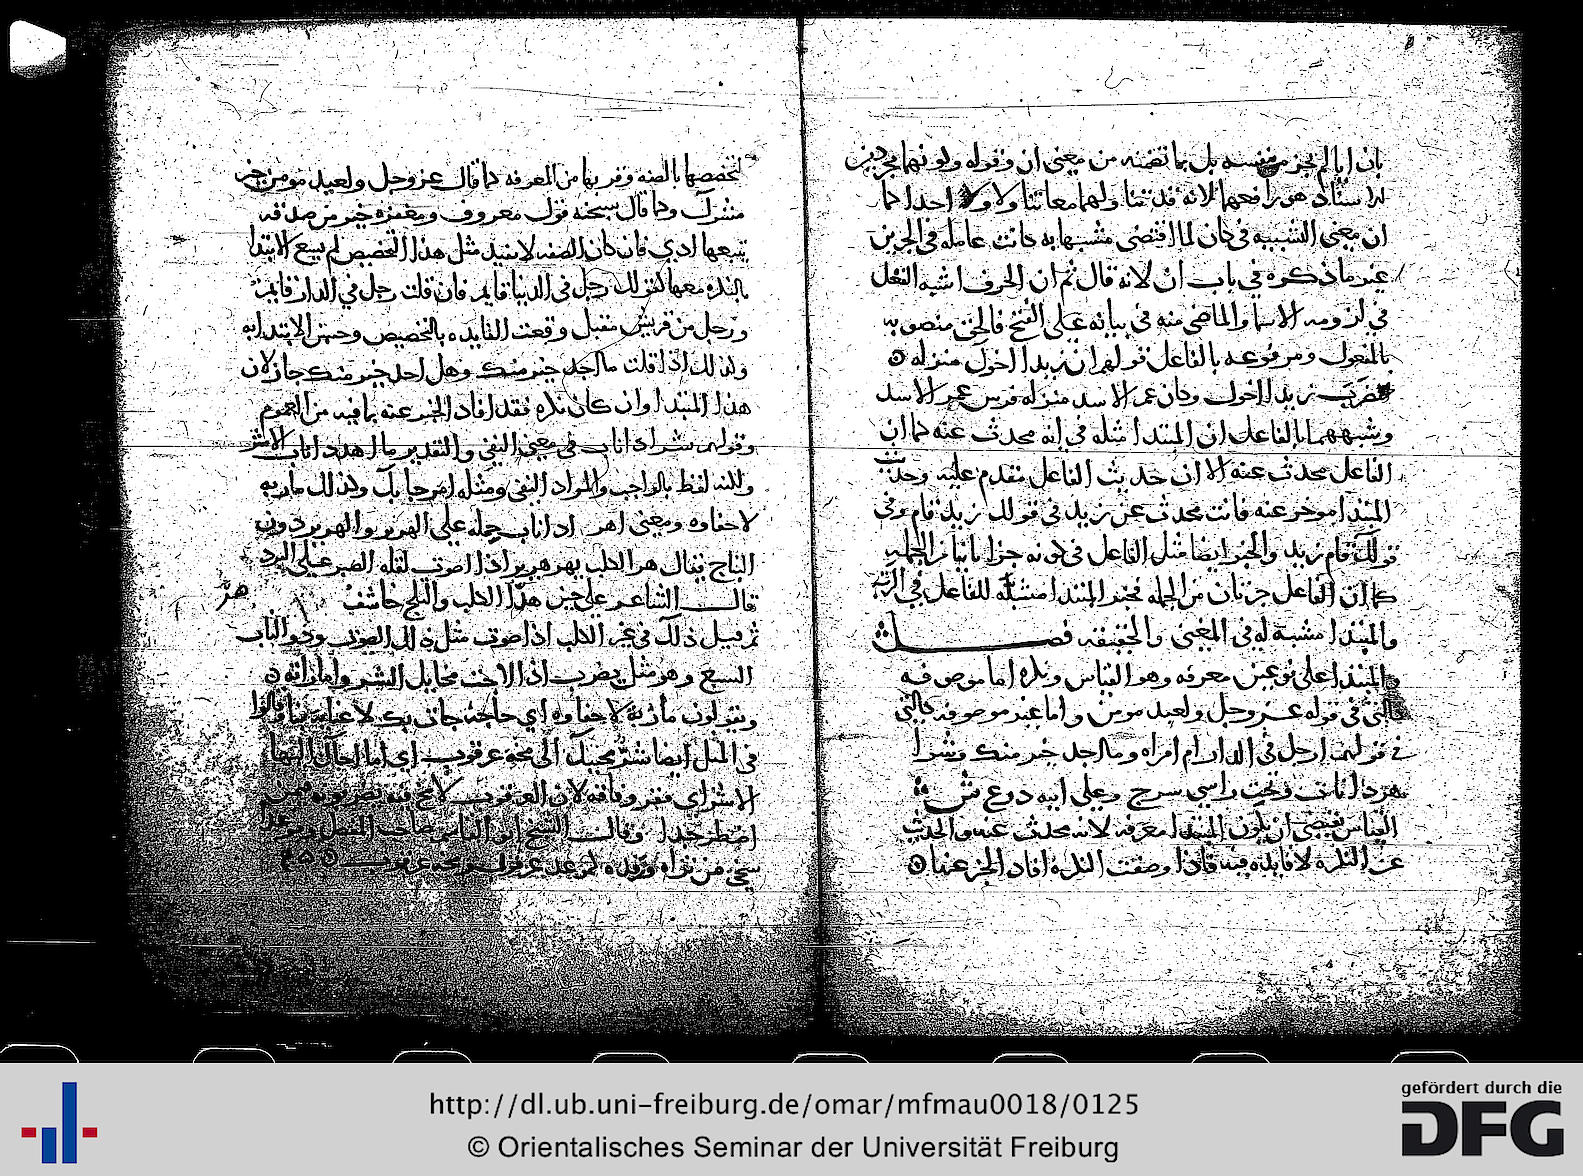 بان ايا لم يجز بنفسه بل بما تضمنه من معنى ان وقوله ولو نهما
هو رافعهما لانه قد تنا ولهما معا تنا ولا واحدا كما
ان معنى التشبيه في كان لما اقتضى مشبها به كانت عاملة في الجزين
غير ما ذكره في باب ان لانه قال ثم ان الحرف اشبه الفعل
في لزومه الاسما والماضي منه في بيانه على الفتح فالحق منصوبه
بالمفعول ومرفوعه بالفاعل قولهم ان زيدا اخوك منزله
ضرب زيدا اخوك وكان عمرا الاسد منزله فرس عمرا الاسد
وشبههما بالفاعل ان المبتدا مثله في انه محدث عنه كما ان
الفاعل محدث عنه الا ان حديث الفاعل مقدم عليه وحديث
المبتدا موخر عنه فانت محدث عن زيد في قولك زيد قام وفي
قولك قام زيد والخبر ايضا مثل الفاعل في كونه جزا ثانيا من الجمله
كما ان الفاعل جز ثان من الجمله فخبر المبتدا مشبه للفاعل في
والمبتدا مشبه له في المعنى والحقيقه فصل
والمبتدا على نوعين معرفه وهو القياس ونكره اما موصوفه
كالتي في قوله عز وجل ولعبد مومن واما غير موصوفه كالتي
في قولهم ارجل في الدار ام امراه وما احد خير منك وشر
اهر ذا ناب وتحت راسي سرج وعلى ابيه درع ش
القياس يقتضي ان يكون المبتدا معرفه لانه محدث عنه والحديث
عن النكره لا فايده فيه فاذا وصفت النكره افاد الخبر عنها
تخصصها بالصفه وقربها من المعرفه كما قال عز وجل ولعبد مومن خير
مشرك وكما قال سبحنه قول معروف ومغفره خير من صدقه
يتبعها اذي فان كان الصفه لا تفيد مثل هذا التخصيص لم يسغ الابتدا
بالنكره معها كقولك رجل في الدنيا قايم فان قلت رجل في الدار قايم
ورجل من قريش مقبل وقعت الفايده بالتخصيص وحسن الابتدا به
وكذلك اذا قلت ما احد خير منك وهل احد خير منك جاز لان
هذا المبتدا وان كان نكره فقد افاد الخبر عنه بما فيه من العموم
وقولهم شر اهر ذا ناب في معنى النفي والتقدير ما اهر ذا ناب الا شر
ولكنه لفظ بالواجب والمراد النفي ومثله امر جا بك وكذلك مار به
لا حفاوه ومعنى اهر ذا ناب حمله على الهرير والهرير دون
النباح يقال هر الكلب يهر هريرا اذا صوت لقله الصبر على البرد
قال الشاعر على حين هر الكلب والثلج خاشف
هر
ثم قيل ذلك في غير الكلب اذا صوت مثل ذلك الصوت وذو الناب
السبع وهو مثل يضرب اذا لاحت مخايل الشر واماراته
ويقولون ماربة لا حفاوه اي حاجه جات بك لا عنايه بنا وقالوا
في المثل ايضا شر يجيك الى مخه عرقوب اي اما احالك اليها
الا شر اي فقر وفاقه لان العرقوب لا مخ فيه
اضطر جدا وقال الشيخ ابو العباس صاحب المفصل
http://dl.ub.uni-freiburg.de/omar/mfmau0018/0125
© Orientalisches Seminar der Universität Freiburg
gefördert durch die
DFG